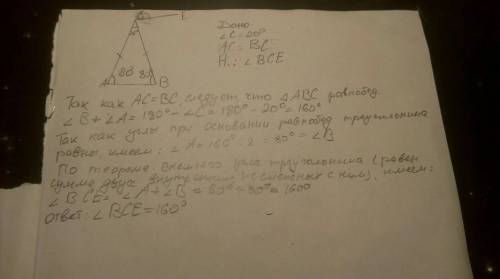 C E
A 80 8 B
Дано
∠C = 20°
AC = BC
Н.: ∠BCE
Так как AC=BC, следует, что △ABC равнобед.
∠B + ∠A = 180° - ∠C = 180° - 20° = 160°
Так как углы при основании равнобед треугольника
равны, имеем: ∠A = 160° : 2 = 80° = ∠B
По теореме внешнего угла треугольника (равен
сумме двух внутренних не смежных с ним), имеем:
∠BCE = ∠A + ∠B = 80° + 80° = 160°
Ответ: ∠BCE = 160°